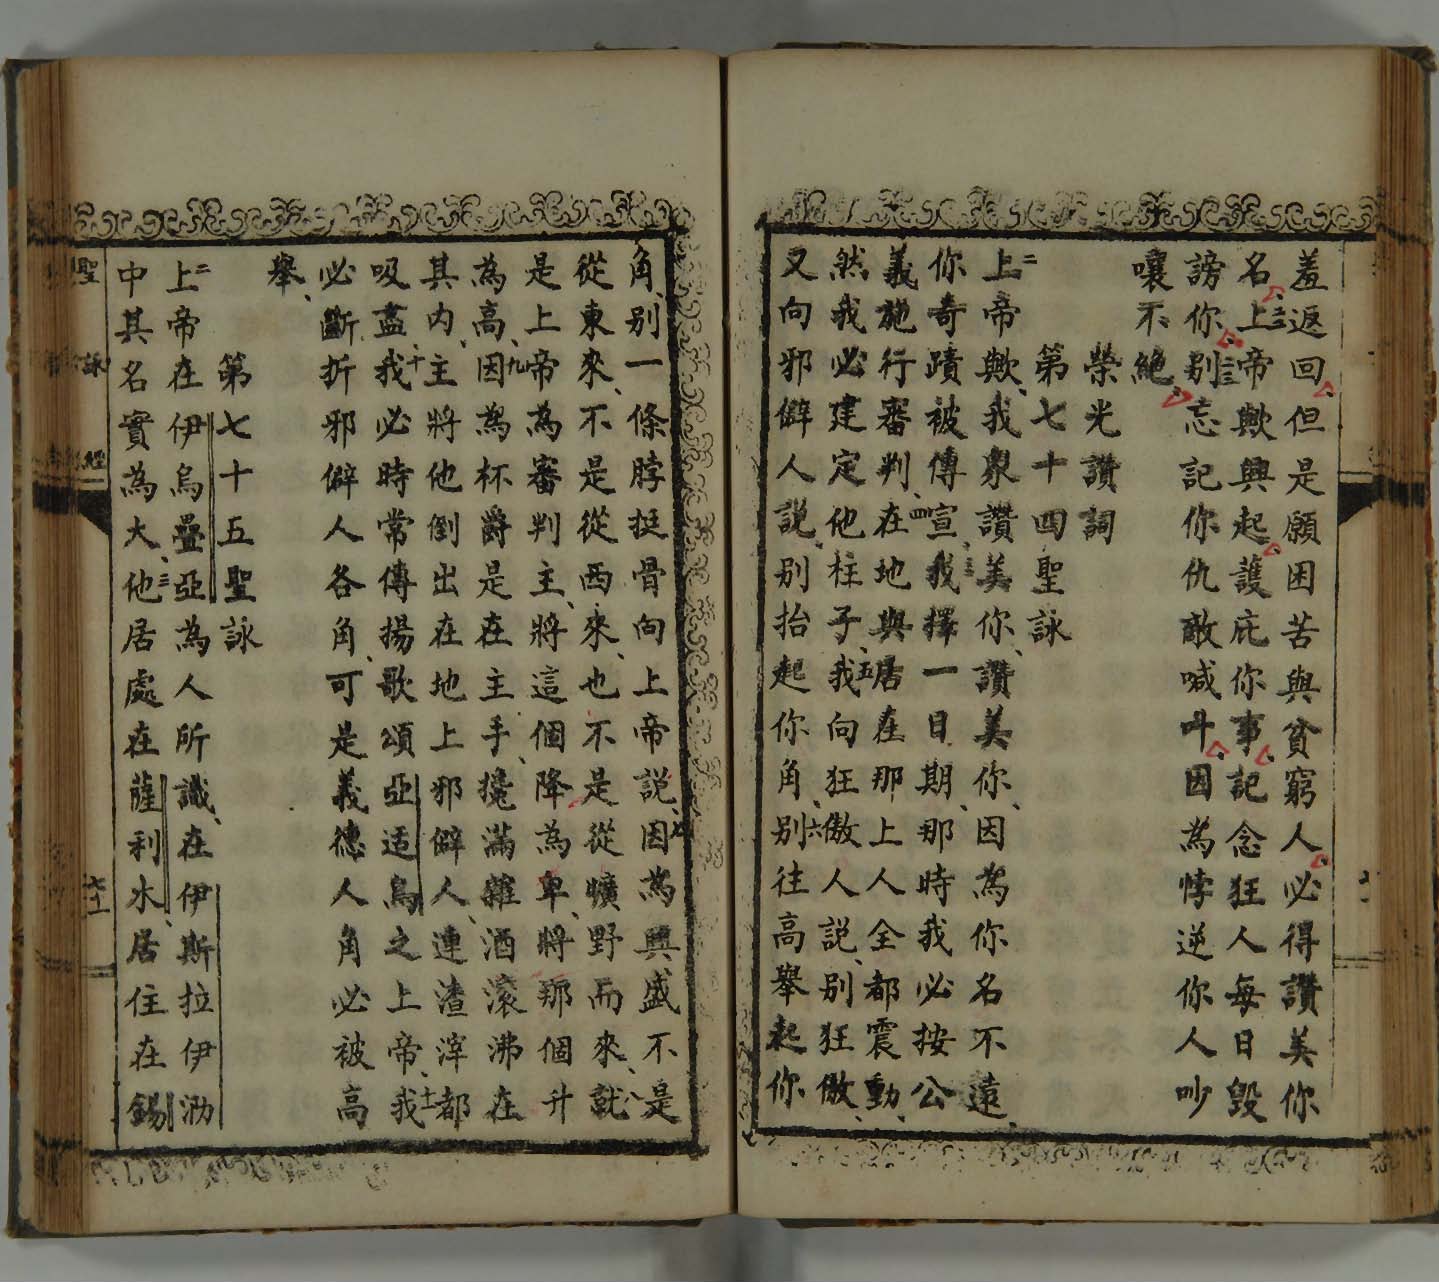 羞返回、但是願困苦與貧窮人、必得讚美你
名、二二上帝歟興起、護庇你事、記念狂人每日毀
謗你、二三别忘記你仇敵喊叫、因為悖逆你人吵
嚷不絕、
榮光讚詞
第七十四聖詠
二上帝歟、我衆讚美你、讚美你、因為你名不遠、
你奇蹟被傳宣、三我擇一日期、那時我必按公
義施行審判、四在地與居在那上人全都震動、
然我必建定他柱子、五我向狂傲人說、别狂傲、
又向邪僻人說、别抬起你角、六别往高舉起你
角、别一條脖挺骨向上帝說、七因為興盛不是
從東來、不是從西來、也不是從曠野而來、八就
是上帝為審判主、將這個降為卑、將那個升
為高、九因為杯爵是在主手、攙滿雜酒滚沸在
其内、主將他倒出在地上邪僻人、連渣滓都
吸盡、十我必時常傳揚歌頌亞适烏之上帝、十一我
必斷折邪僻人各角、可是義德人角必被高
舉、
第七十五聖詠
二上帝在伊烏疊亞為人所識、在伊斯拉伊泐
中其名實為大、三他居處在薩利水、居住在錫
聖詠
經二
六十一